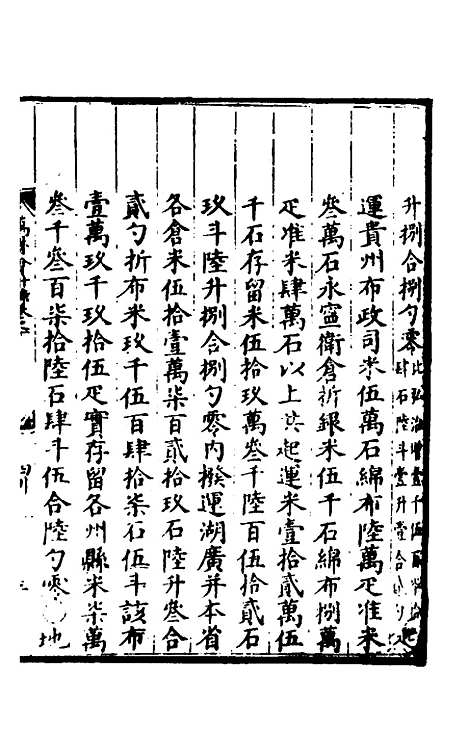 升捌合捌勺零比弘治增壹千伍百
肆石陸斗壹升壹合
運貴州布政司米伍萬石綿布陸萬疋准米
叁萬石永寧衛倉折銀米伍千石綿布捌萬
疋准米肆萬石以上共起運米壹拾貳萬伍
千石存留米伍拾玖萬叁千陸百伍拾貳石
玖斗陸升捌合捌勺零内撥運湖廣并本省
各倉米伍拾壹萬柒百貳拾玖石陸升叁合
貳勺折布米玖千伍百肆拾柒石伍斗該布
壹萬玖千玖拾伍疋實存留各州縣米柒萬
叁千叁百柒拾陸石肆斗伍合陸勺零地
萬曆會計錄卷之